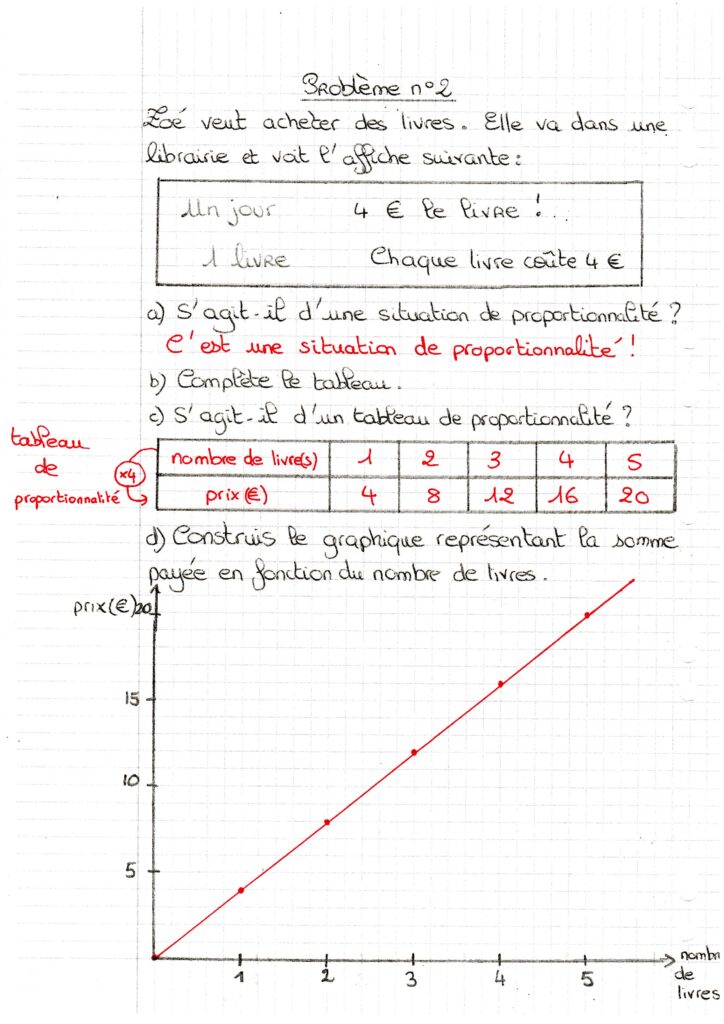 Problème n°2
Zoé veut acheter des livres. Elle va dans une
librairie et voit l'affiche suivante :
Un jour 4 € le livre !...
1 livre Chaque livre coûte 4 €
a) S'agit-il d'une situation de proportionnalité ?
C'est une situation de proportionnalité !
b) Complète le tableau.
c) S'agit-il d'un tableau de proportionnalité ?
tableau
de
proportionnalité
×4
nombre de livre(s) 1 2 3 4 5
prix (€) 4 8 12 16 20
d) Construis le graphique représentant la somme
payée en fonction du nombre de livres.
prix (€) 20
15
10
5
1 2 3 4 5
nombr
de
livres